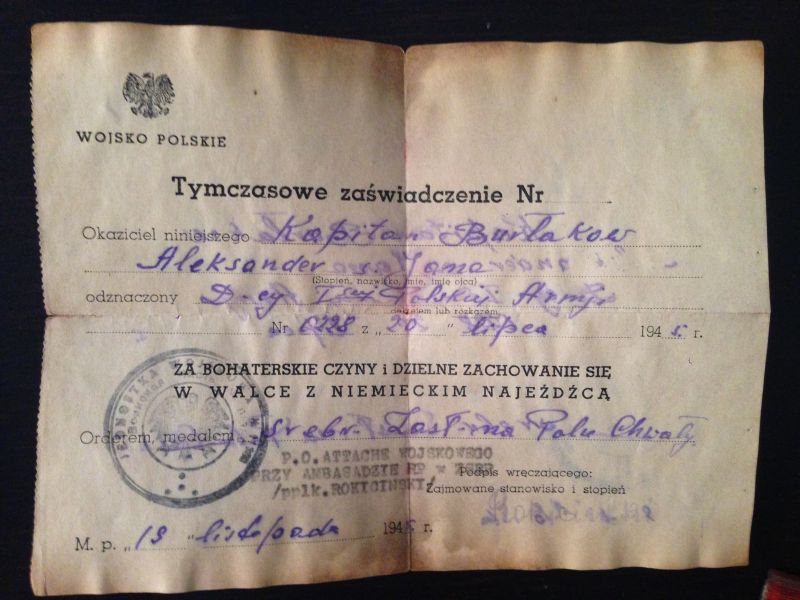 WOJSKO POLSKIE
Tymczasowe zaświadczenie Nr
Okaziciel niniejszego Kapitan Burłakow
Aleksander s. Jana
(Stopień, nazwisko, imię, imię ojca)
odznaczony D-cy Polskiej Armji
dekretem lub rozkazem
Nr 0228 z „20" lipca 1945 r.
ZA BOHATERSKIE CZYNY i DZIELNE ZACHOWANIE SIĘ
W WALCE Z NIEMIECKIM NAJEŹDŹCĄ
Orderem, medalem srebr. Zasł. na Polu Chwały
JEDNOSTKA WOJSKOWA
P.O. ATTACHE WOJSKOWEGO
PRZY AMBASADZIE RP w ZSRR
/ppłk. ROKICIŃSKI/
Podpis wręczającego:
Zajmowane stanowisko i stopień
M. p. „19" listopada 1945 r.